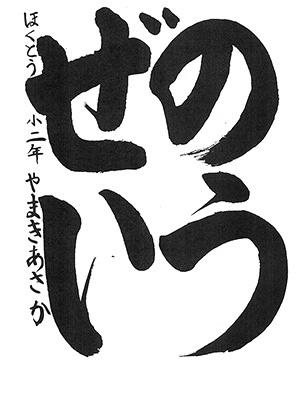 のう
ぜい
ほくとう 小二年 やまきあさか